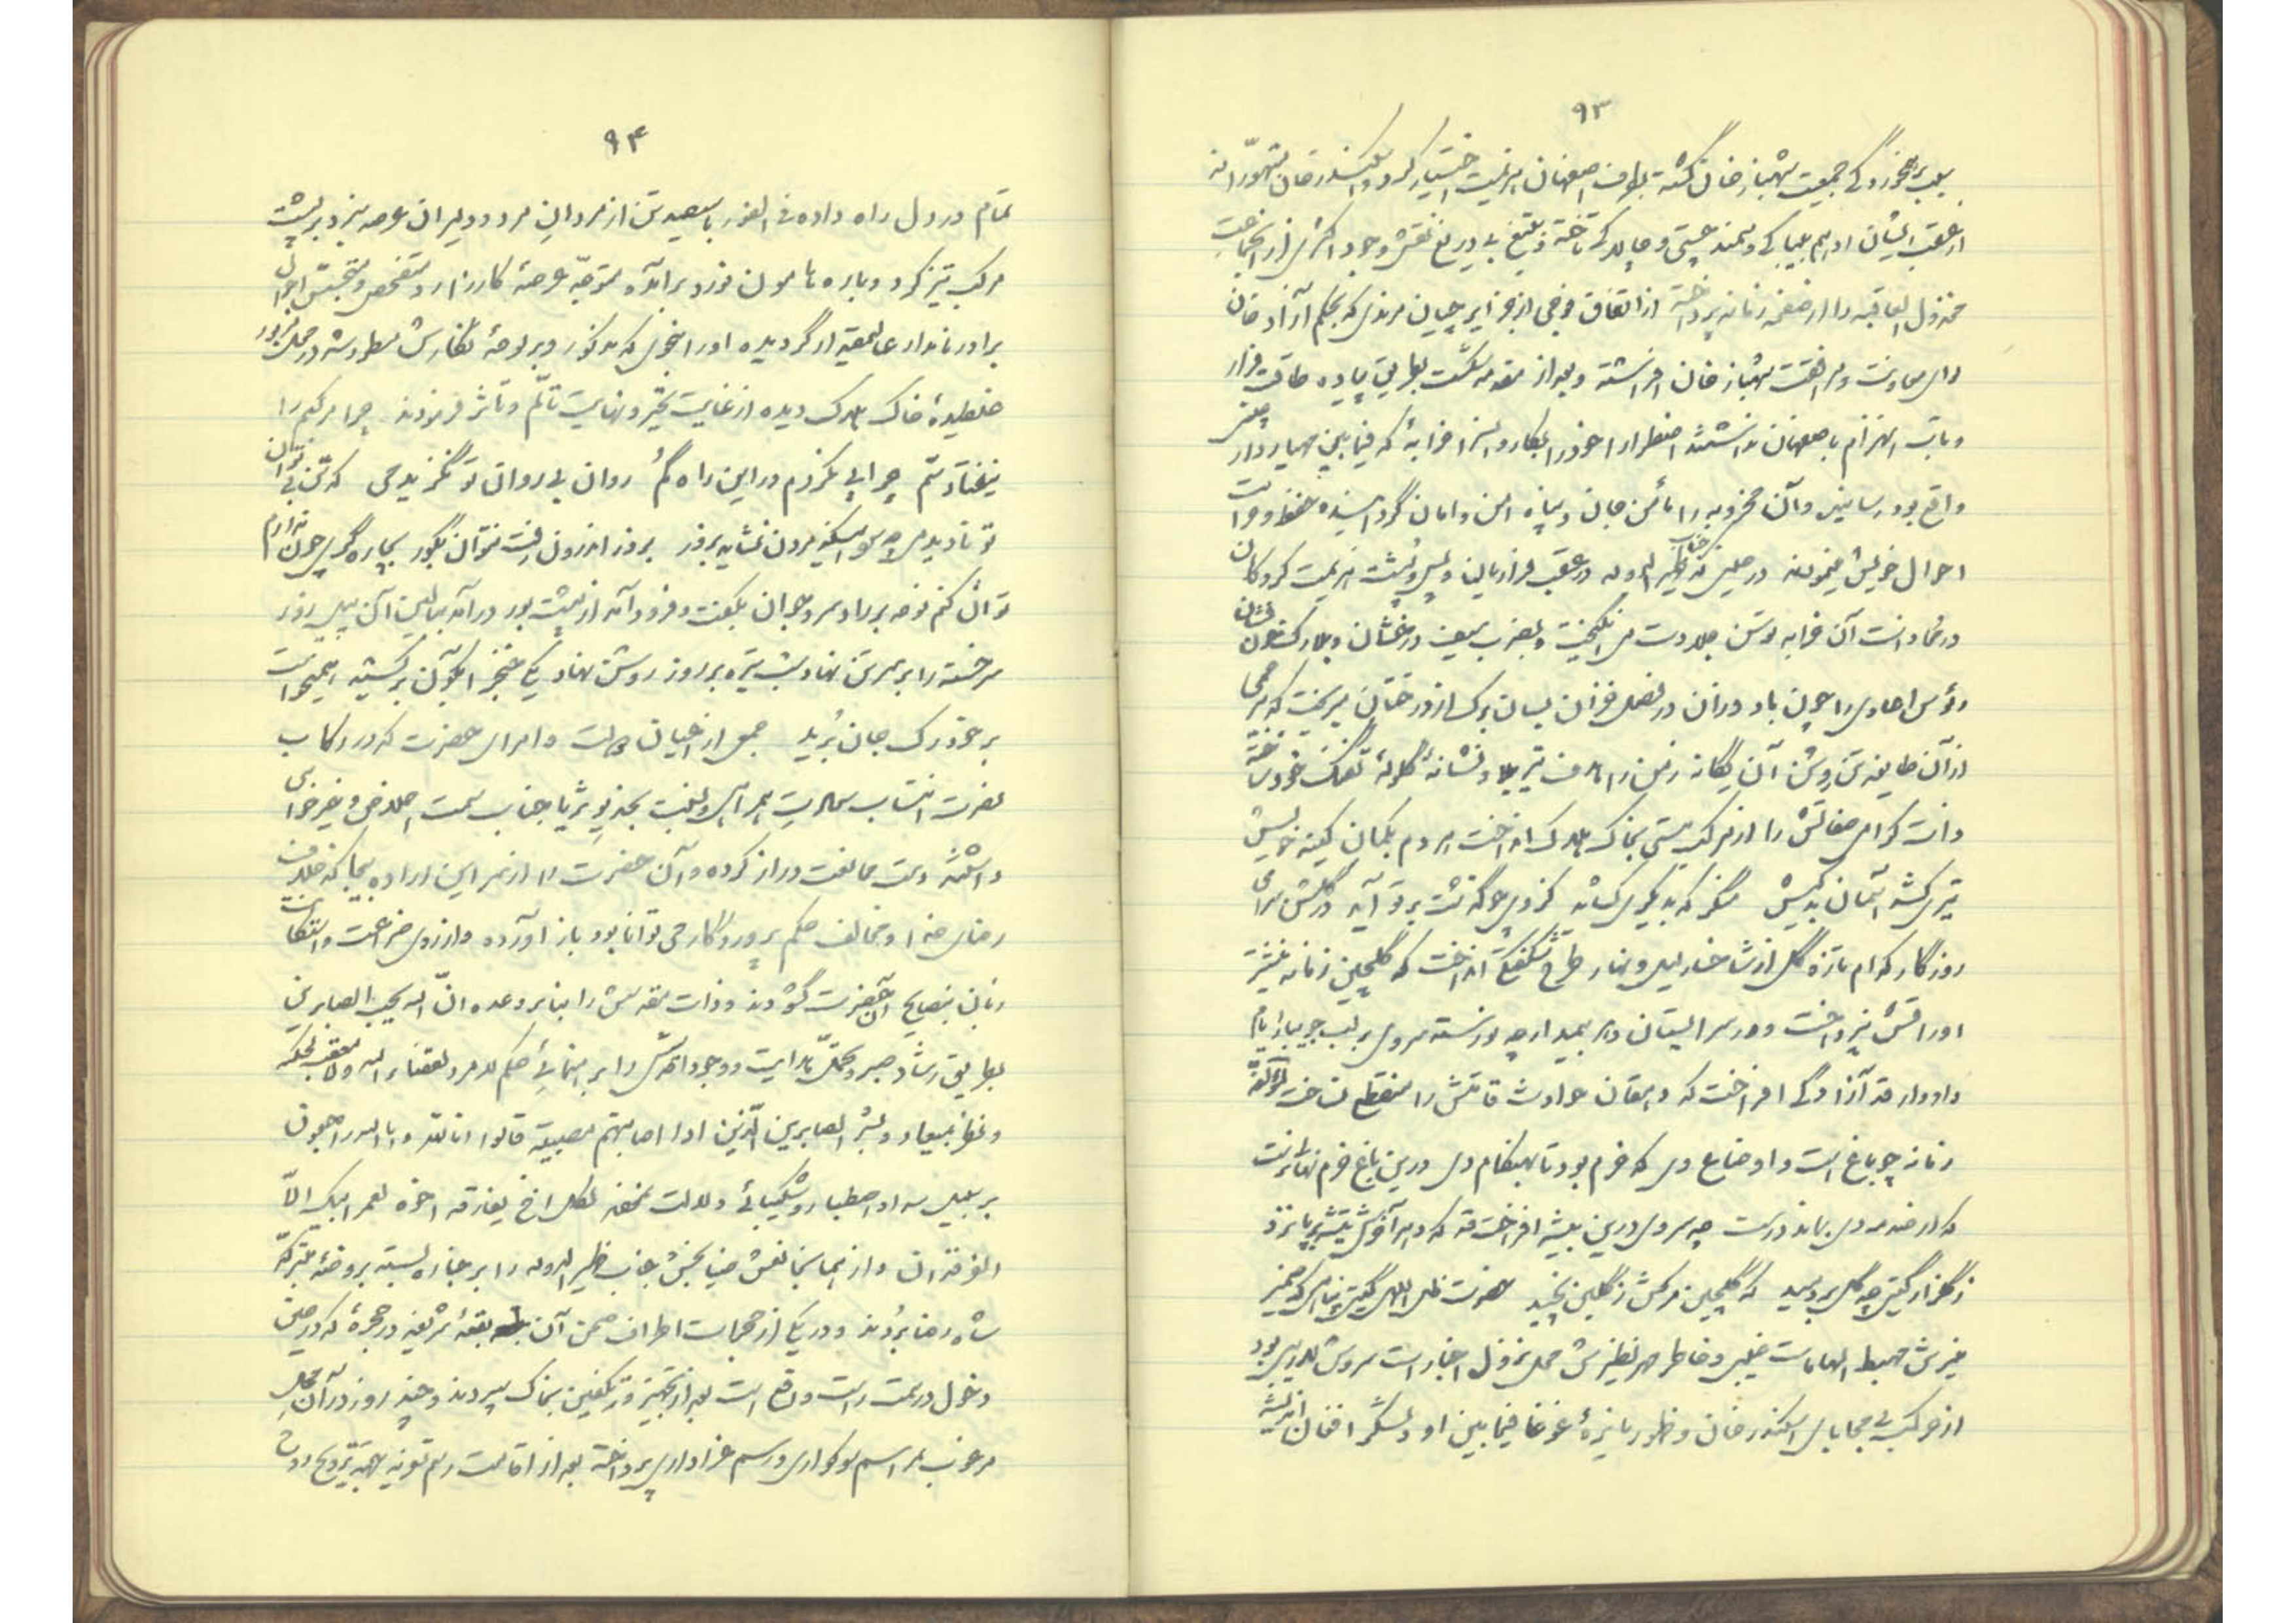 ۹۳
جمعیت شهباز خان گشته بطرف اصفهان هزیمت اختیار کرد و اسکندر خان متهورانه
از عقب ایشان ادهم بیباکی و سمند چستی و چالاکی تاخته و بتیغ بی دریغ نقش وجود اکثری از آن جماعت
مخذول العاقبه را از صفحه زمانه پرداخته از اتفاق فوجی از جزایرچیان مرندی که بحکم آزاد خان
برای معاونت و مرافقت شهباز خان افراشته و بعد از مقدمه شکست بطریق پیاده طاقت فرار
و تاب انهزام باصفهان نداشتند اضطرارا خود را بکاروانسرا خرابهٔ که فیما بین مهیار و
واقع بود رسانیده و آن مخروبه را مأمن جان و پناه امن و امان گردانیده حفظ و حراست
احوال خویش مینمودند در حینی که جناب ظهیر الدوله در عقب فراریان و پس و پشت هزیمت کردگان
آن خرابه توسن جلادت می انگیخت و بضرب سیف درخشان و
رؤس اعادی را چون باد وزان در فصل خزان بسان برگ از درختان میریخت که
از آن طایفه تن روشن آن یگانه زمن را هدف تیر بلا و نشانهٔ گلوله تفنگ خود ساخته
ذات گرامی صفاتش را از مرکب هستی بخاک هلاک انداخت هر دم بکمان کینه خویش
تیری کشد آسمان بدکیش مگر که بدیگری کشاند کز وی چو گذشت بر تو آید در گلشن سرای
روزگار کدام تازه گل از شاخسار لیل و نهار طرح شکفتگی انداخت که گلچین زمانه
اوراقش نپرداخت و در سرابستان دهر بیمدار چه نورسته سروی بر لب جویبار ایام
قد آزادگی افراخت که دهقان حوادث قامتش را منقطع نساخت لمؤلفه
زمانه چو باغ است و اوضاع وی که خرم بود تا بهنگام دی درین باغ خرم نهالی نرست
که از صدمه دی بماند درست چه سروی درین بیشه افراخت قد که دهر آخرش تیشه بر پا نزد
ز گلزار گیتی چه گل بر دمید که گلچین مرگش ز گلبن نچید حضرت ظل اللهی گیتی پناهی که ضمیر
منیرش مهبط الهامات غیبی و خاطر مهر نظیرش محل نزول اخبار است سروش لاریبی بود
از حرکت بی محابای اسکندر خان و ظهور نایرهٔ غوغا فیما بین او و لشکر افغان اندیشه
۹۴
تمام در دل راه داده فی الفور با سیصد تن از مردان مرد و دلیران عرصه نبرد بر پشت
مرکب تیز گرد و باره هامون نورد برآمده متوجه عرصهٔ کارزار و متفحص و متجسس احوال
برادر نامدار عالیمقدار گردیده او را بنحوی که مذکور و بر لوحهٔ نگارش مسطور شد در محل مزبور
غلطیدهٔ خاک هلاک دیده از غایت تحیر و نهایت تألم و تأثر فرمودند چرا مرکبم را
نیفتاد سم چرا پی نکردم در این راه گم روان بی روان تو نگزیدمی که تن بی توان
تو نادیدمی چه سود اسکندر مردن نشاید بروز بروز اندرون رفت نتوان بگور بچاره گری چون ندارم
توان کنم نوحه بر یاد سرو جوان بگفت و فرود آمد از پشت بور درآمد ببالین آن
سر خسته را بر سر تن نهاد شب تیره بر روز روشن نهاد یکی خنجر آبگون برکشید همیخواست
بر خود رگ جان برید جمعی از اعیان دولت و امرای حضرت که در رکاب
نصرت انتساب سعادت همراهی و نسبت بخدیو ثریا جناب سمت اخلاص و خیرخواهی
داشتند دست ممانعت دراز کرده و آن حضرت را از سر این اراده بیجا که خلاف
رضای خدا و مخالف حکم پروردگار حی توانا بود باز آورده و از روی ضراعت و استکانت
زبان بنصایح آنحضرت گشودند و ذات مقدسش را بنا بر وعده ان الله یحب الصابرین
بطریق رشاد صبر و تحمل هدایت و وجود اقدسش را برهنمائی حکم لا مرد لقضاء الله و لا معقب لحکمه
و بشر الصابرین الذین اذا اصابتهم مصیبة قالوا انا لله و انا الیه راجعون
بر سبیل سداد اصطبار و شکیبائی دلالت نمودند لکل اخ یفارقه اخوه لعمر ابیک الا
الفرقدان و از همانجا نعش ضیا بخش جناب ظهیر الدوله را بر جنازه بسته بروضهٔ متبرکه
شاه رضا بردند و در یکی از حجرات اطراف صحن آن بقعهٔ شریفه در حجرهٔ که در حین
دخول در سمت راست واقع است بعد از تجهیز و تکفین بخاک سپردند و چند روز در آن محل
مرغوب بمراسم سوگواری و رسم عزاداری پرداخته بعد از اقامت رسم تعزیه بجهة ترویح روح